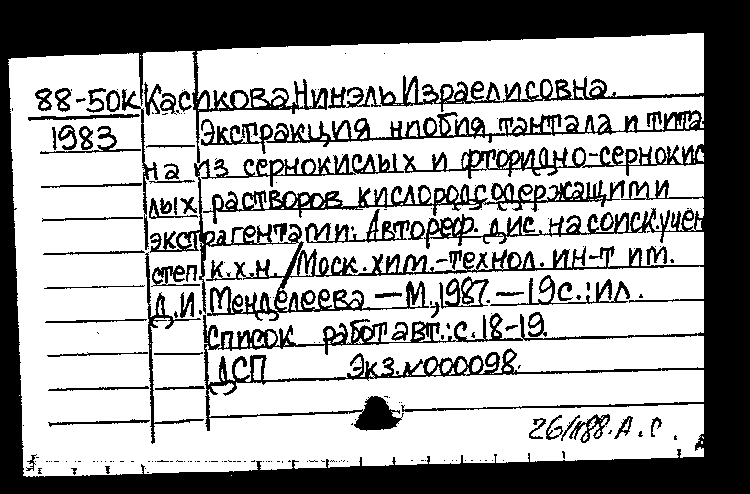 88-50к Касикова, Нинэль Израелисовна.
1983 Экстракция ниобия, тантала и тита-
на из сернокислых и фторидно-сернокис
лых растворов кислородсодержащими
экстрагентами: Автореф. дис. на соиск. учен
степ. к.х.н. / Моск. хим.-технол. ин-т им.
Д.И. Менделеева. — М., 1987. — 19с.: ил.
Список работ авт.: с. 18-19.
ДСП Экз. N000098.
26/II88. А.С.